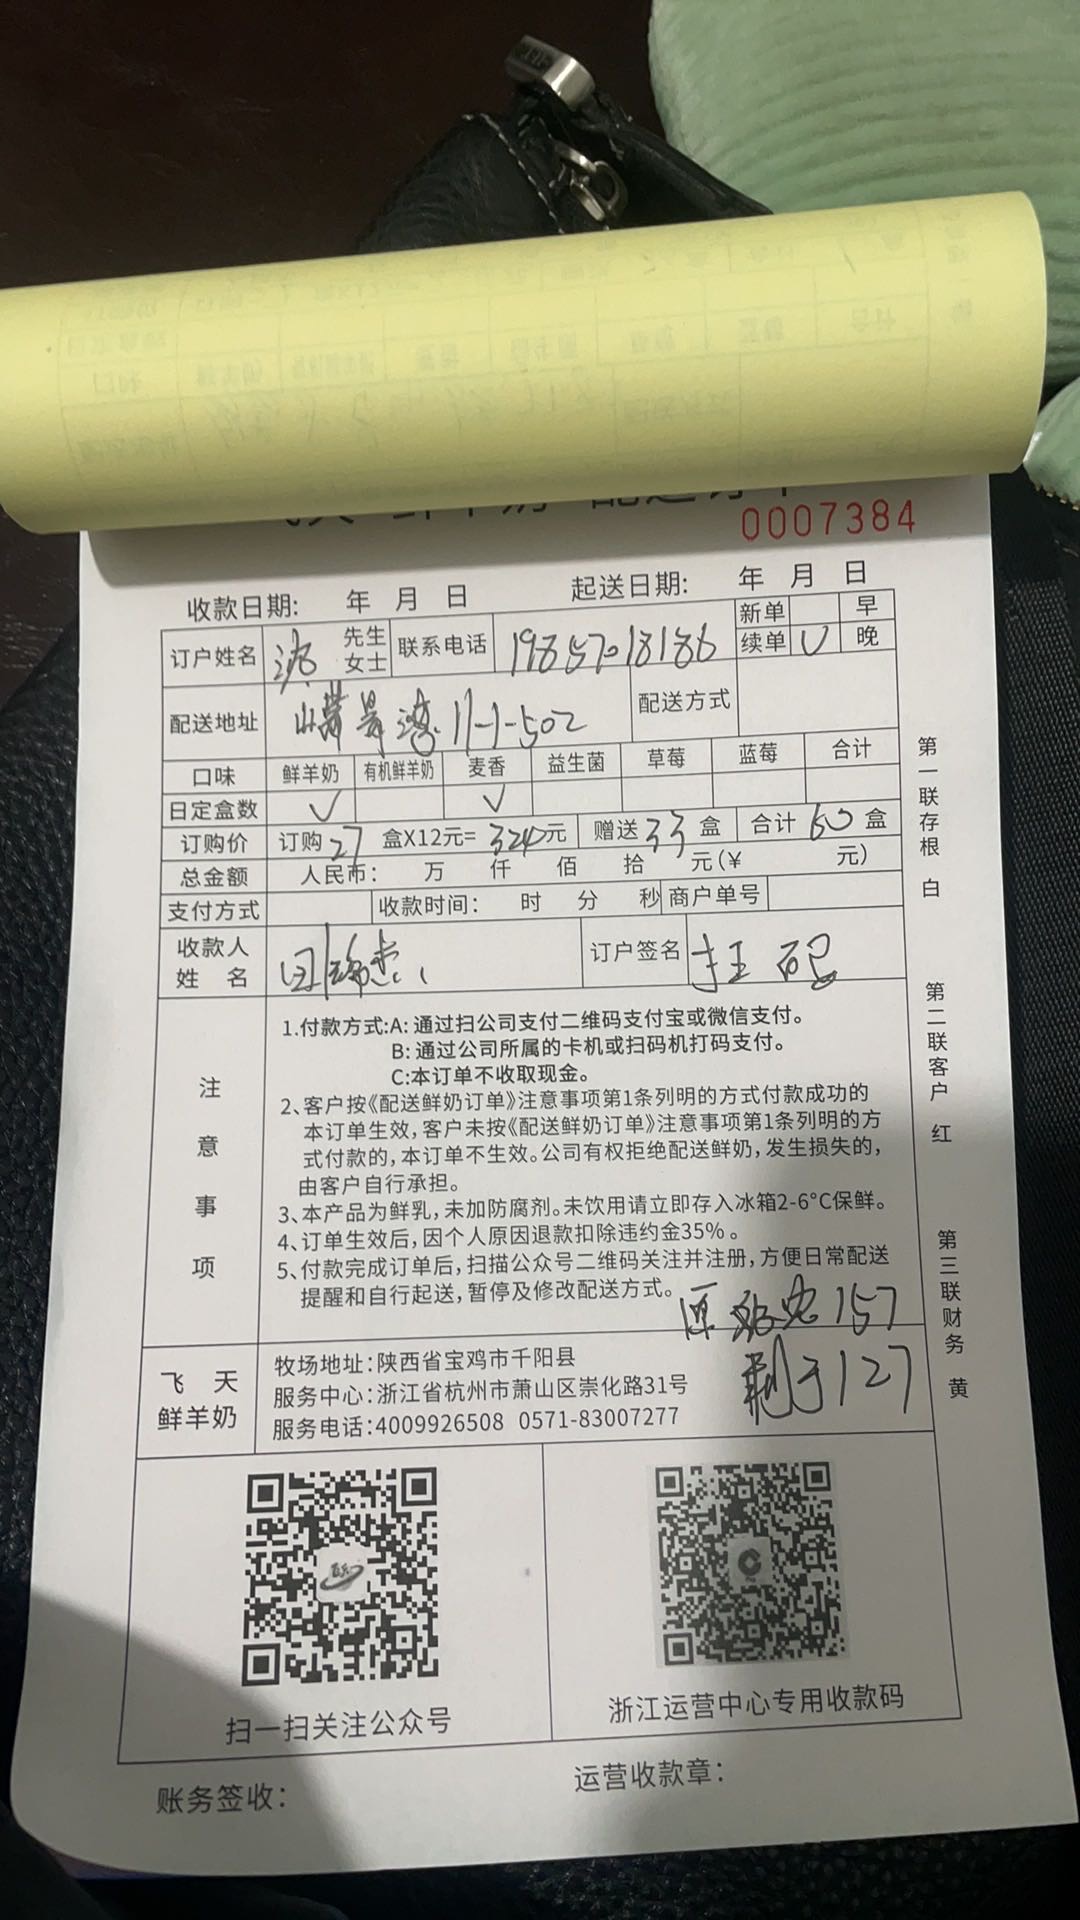 0007384
收款日期: 年 月 日 起送日期: 年 月 日
订户姓名 先生 女士 联系电话 19857018186 新单 早
续单 ✓ 晚
配送地址 11-1-502 配送方式
口味 鲜羊奶 有机鲜羊奶 麦香 益生菌 草莓 蓝莓 合计
日定盒数 ✓ ✓
订购价 订购 27 盒X12元= 324元 赠送 33 盒 合计 60 盒
总金额 人民币: 万 仟 佰 拾 元(¥ 元)
支付方式 收款时间: 时 分 秒 商户单号
收款人姓名 订户签名 扫码
注意事项
1.付款方式:A: 通过扫公司支付二维码支付宝或微信支付。
B: 通过公司所属的卡机或扫码机打码支付。
C:本订单不收取现金。
2、客户按《配送鲜奶订单》注意事项第1条列明的方式付款成功的
本订单生效,客户未按《配送鲜奶订单》注意事项第1条列明的方
式付款的,本订单不生效。公司有权拒绝配送鲜奶,发生损失的,
由客户自行承担。
3、本产品为鲜乳,未加防腐剂。未饮用请立即存入冰箱2-6°C保鲜。
4、订单生效后,因个人原因退款扣除违约金35%。
5、付款完成订单后,扫描公众号二维码关注并注册,方便日常配送
提醒和自行起送,暂停及修改配送方式。
157
127
飞天
鲜羊奶
牧场地址:陕西省宝鸡市千阳县
服务中心:浙江省杭州市萧山区崇化路31号
服务电话:4009926508 0571-83007277
扫一扫关注公众号
浙江运营中心专用收款码
账务签收:
运营收款章:
第一联存根 白
第二联客户 红
第三联财务 黄